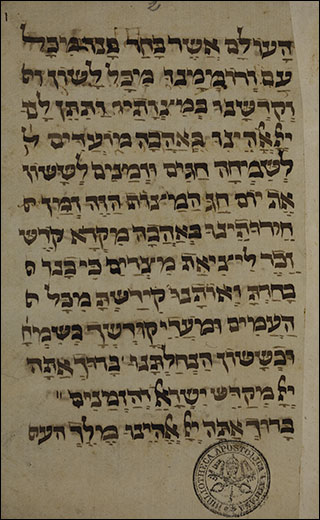 1
2
העולם אשר בחר בנו מכל
עם ורוממנו מכל לשון ות
וקדשנו במצותיו ותתן לנו
יי אלהינו באהבה מועדים ל
לשמחה חגים וזמנים לששון
את יום חג המצות הזה זמן ח
חירותינו באהבה מקרא קדש
זכר ליציאת מצרים כי בנו ב
בחרת ואותנו קידשת מכל ה
העמים ומעדי קודשך בשמח
ובששון הנחלתנו ברוך אתה
יי מקדש ישראל והזמנים
ברוך אתה יי אלהינו מלך העו
BIBLIOTHECA APOSTOLICA